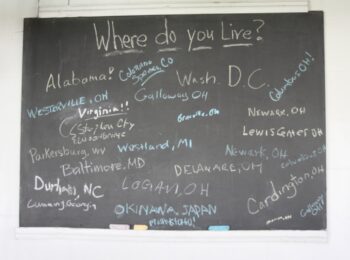 Where do you Live?
Alabama!
Colorado
Springs, CO
Wash. D.C.
Columbus OH!
Westerville, OH
Galloway OH
Virginia!!
Stephen City
Granville, OH
Newark, OH
Lewis Center OH
Parkersburg, WV
Westland, MI
Newark, OH
Columbus, OH
Baltimore, MD
Delaware, OH
Durham, NC
Logan, OH
Cardington, OH
Cumming Georgia
Okinawa, Japan
Galloway
OH!